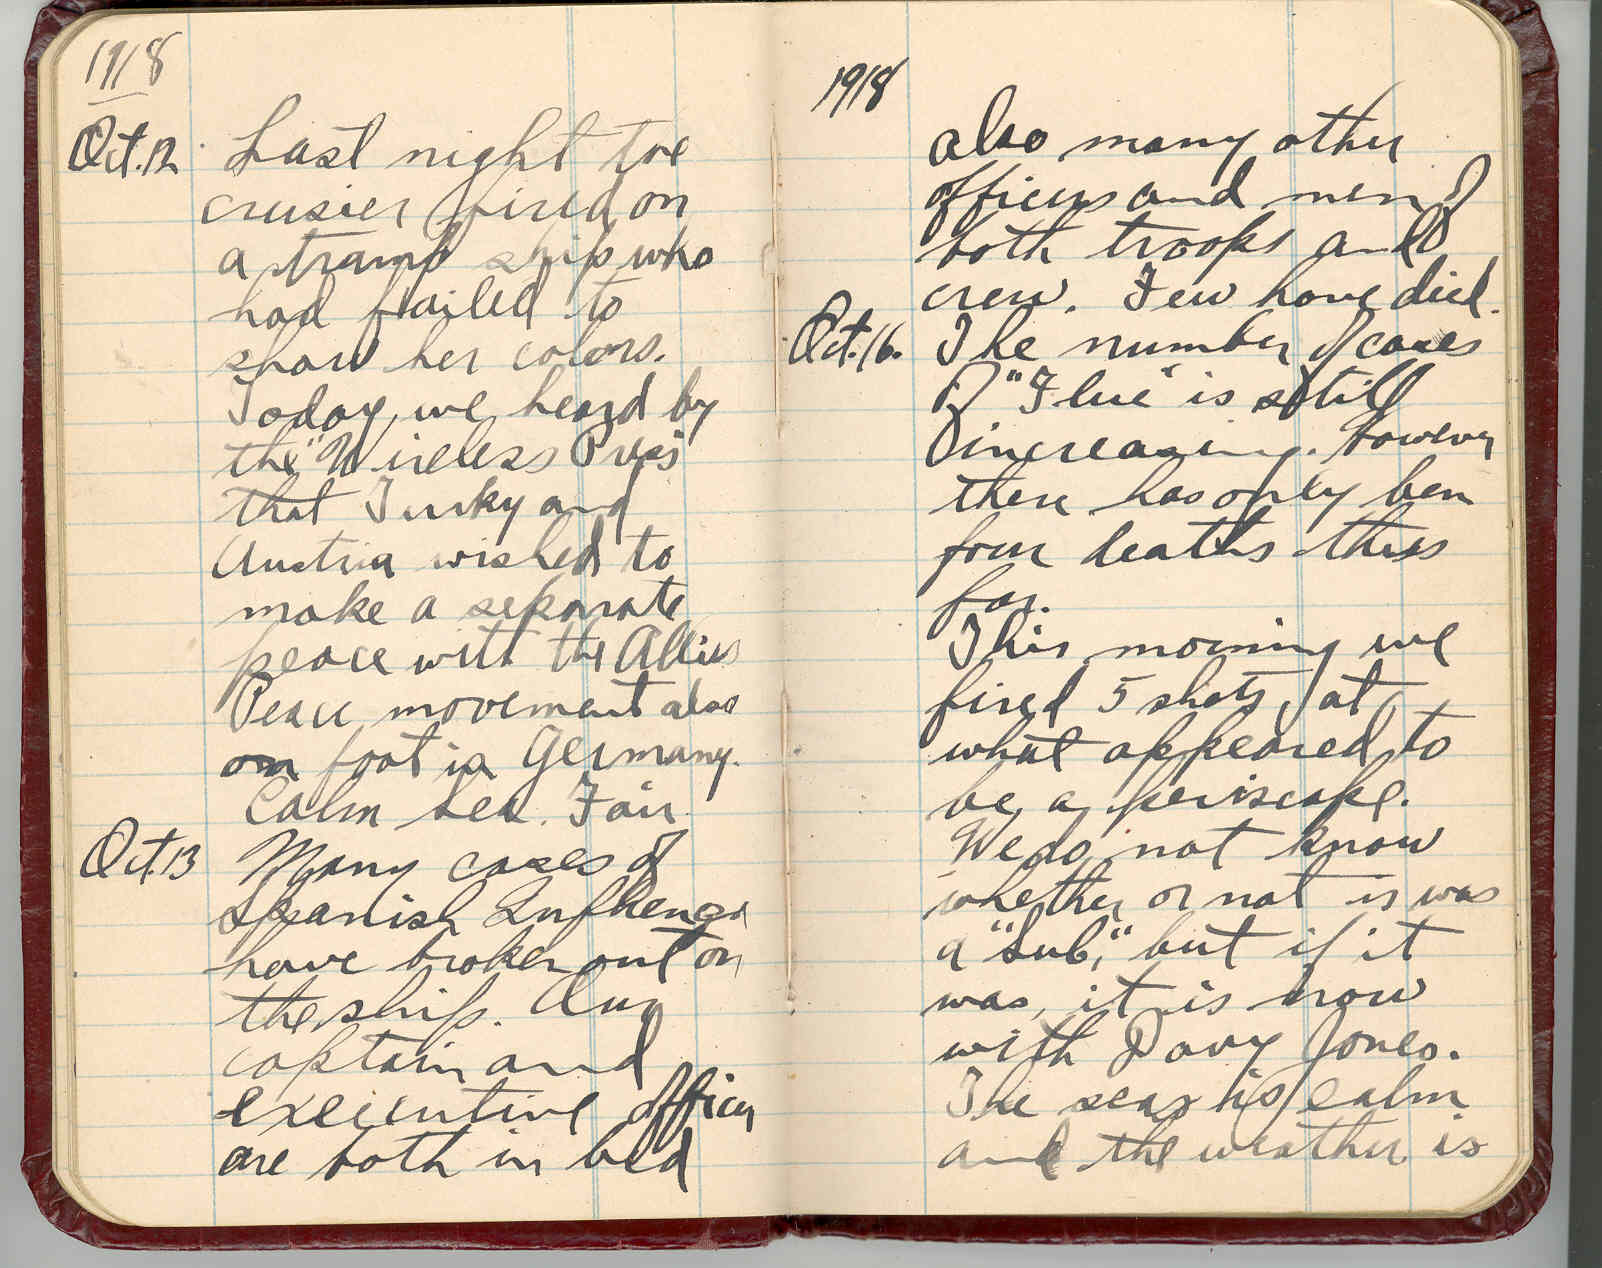 1918
Oct. 12. Last night the
crusier fired on
a tramp ship who
had failed to
show her colors.
Today, we heard by
the "Wireless Press"
that Turky and
Austria wished to
make a separate
peace with the Allies
Peace movement also
on foot in Germany.
Calm sea. Fair
Oct. 13 Many cases of
Spanish Influenga
have broken out on
the ship. Our
captain and
executive officer
are both in bed
1918
also many other
officers and men of
both troops and
crew. Few have died.
Oct. 16. The number of cases
of "Flue" is still
increasing. however
there has only been
four deaths thus
far.
This morning we
fired 5 shots at
what appeared to
be a periscope.
We do not know
whether or not is was
a "sub", but if it
was, it is now
with Davy Jones.
The seas is calm
and the weather is